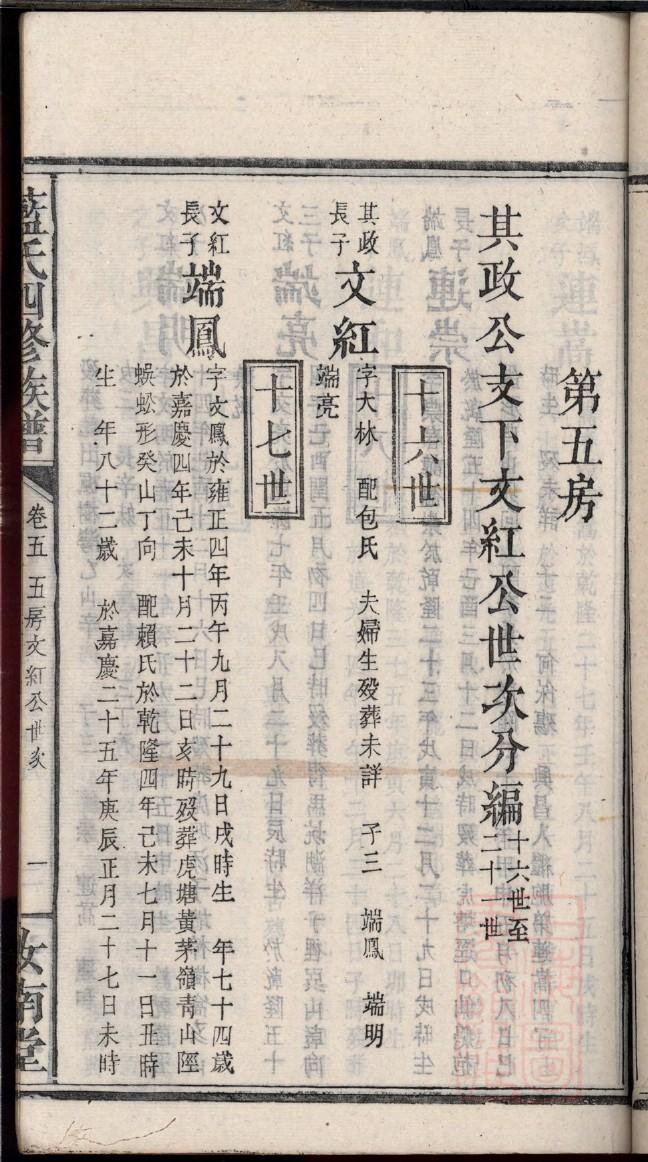 第五房
其政公支下文紅公世次分編十六世至二十一世
十六世
其政長子文紅字大林　配包氏　夫婦生歿葬未詳　子三　端鳳　端明
端亮
十七世
文紅長子端鳳字文鳳於雍正四年丙午九月二十九日戌時生　年七十四歲
於嘉慶四年己未十月二十二日亥時歿葬虎塘黃茅嶺靑山陘
蜈蚣形癸山丁向　配賴氏於乾隆四年己未七月十一日丑時
生　年八十二歲　於嘉慶二十五年庚辰正月二十七日未時
藍氏四修族譜
卷五　五房文紅公世次　一
汝南堂